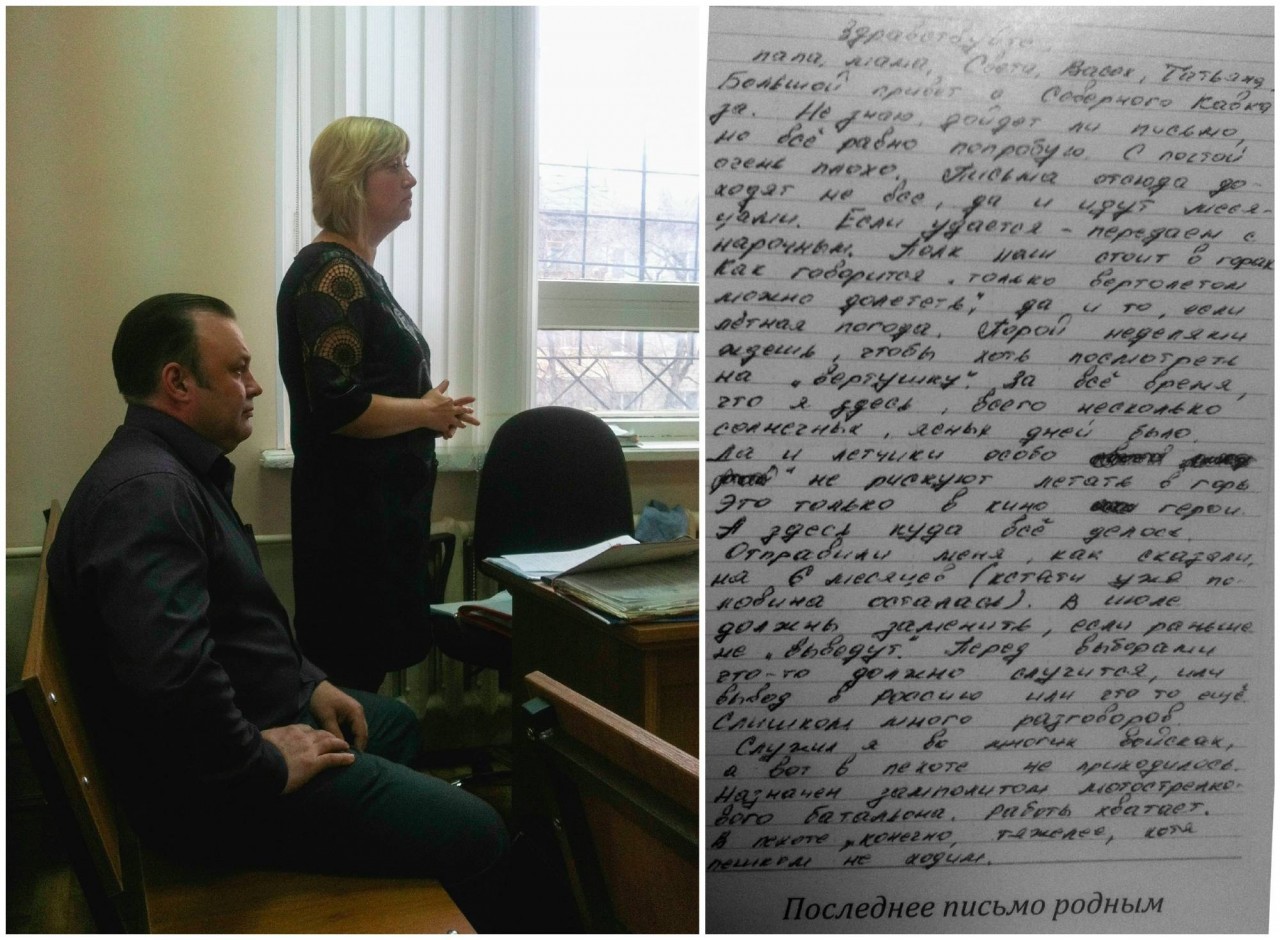 Здравствуйте,
папа, мама, Света, Васек, Татьяна.
Большой привет с Северного Кавка
за. Не знаю, дойдет ли письмо,
но всё равно попробую. С почтой
очень плохо. Письма отсюда до-
ходят не все, да и идут меся-
цами. Если удается - передаем с
нарочным. Полк наш стоит в горах
Как говорится „только вертолетом
можно долететь", да и то, если
лётная погода. Порой неделями
ждешь, чтобы хоть посмотреть
на „вертушку". За всё время,
что я здесь, всего несколько
солнечных, ясных дней было.
Да и летчики особо
не рискуют летать в горы
Это только в кино герои.
А здесь куда всё делось.
Отправили меня, как сказали,
на 6 месяцев (кстати уже по-
ловина осталась). В июле
должны заменить, если раньше
не „выведут." Перед выборами
что-то должно случится, или
вывод в россию или что то ещё
Слишком много разговоров.
Служил я во многих войсках,
а вот в пехоте не приходилось.
Назначен замполитом мотострелко-
вого батальона. Работы хватает.
В пехоте, конечно, тяжелее, хотя
пешком не ходим.
Последнее письмо родным